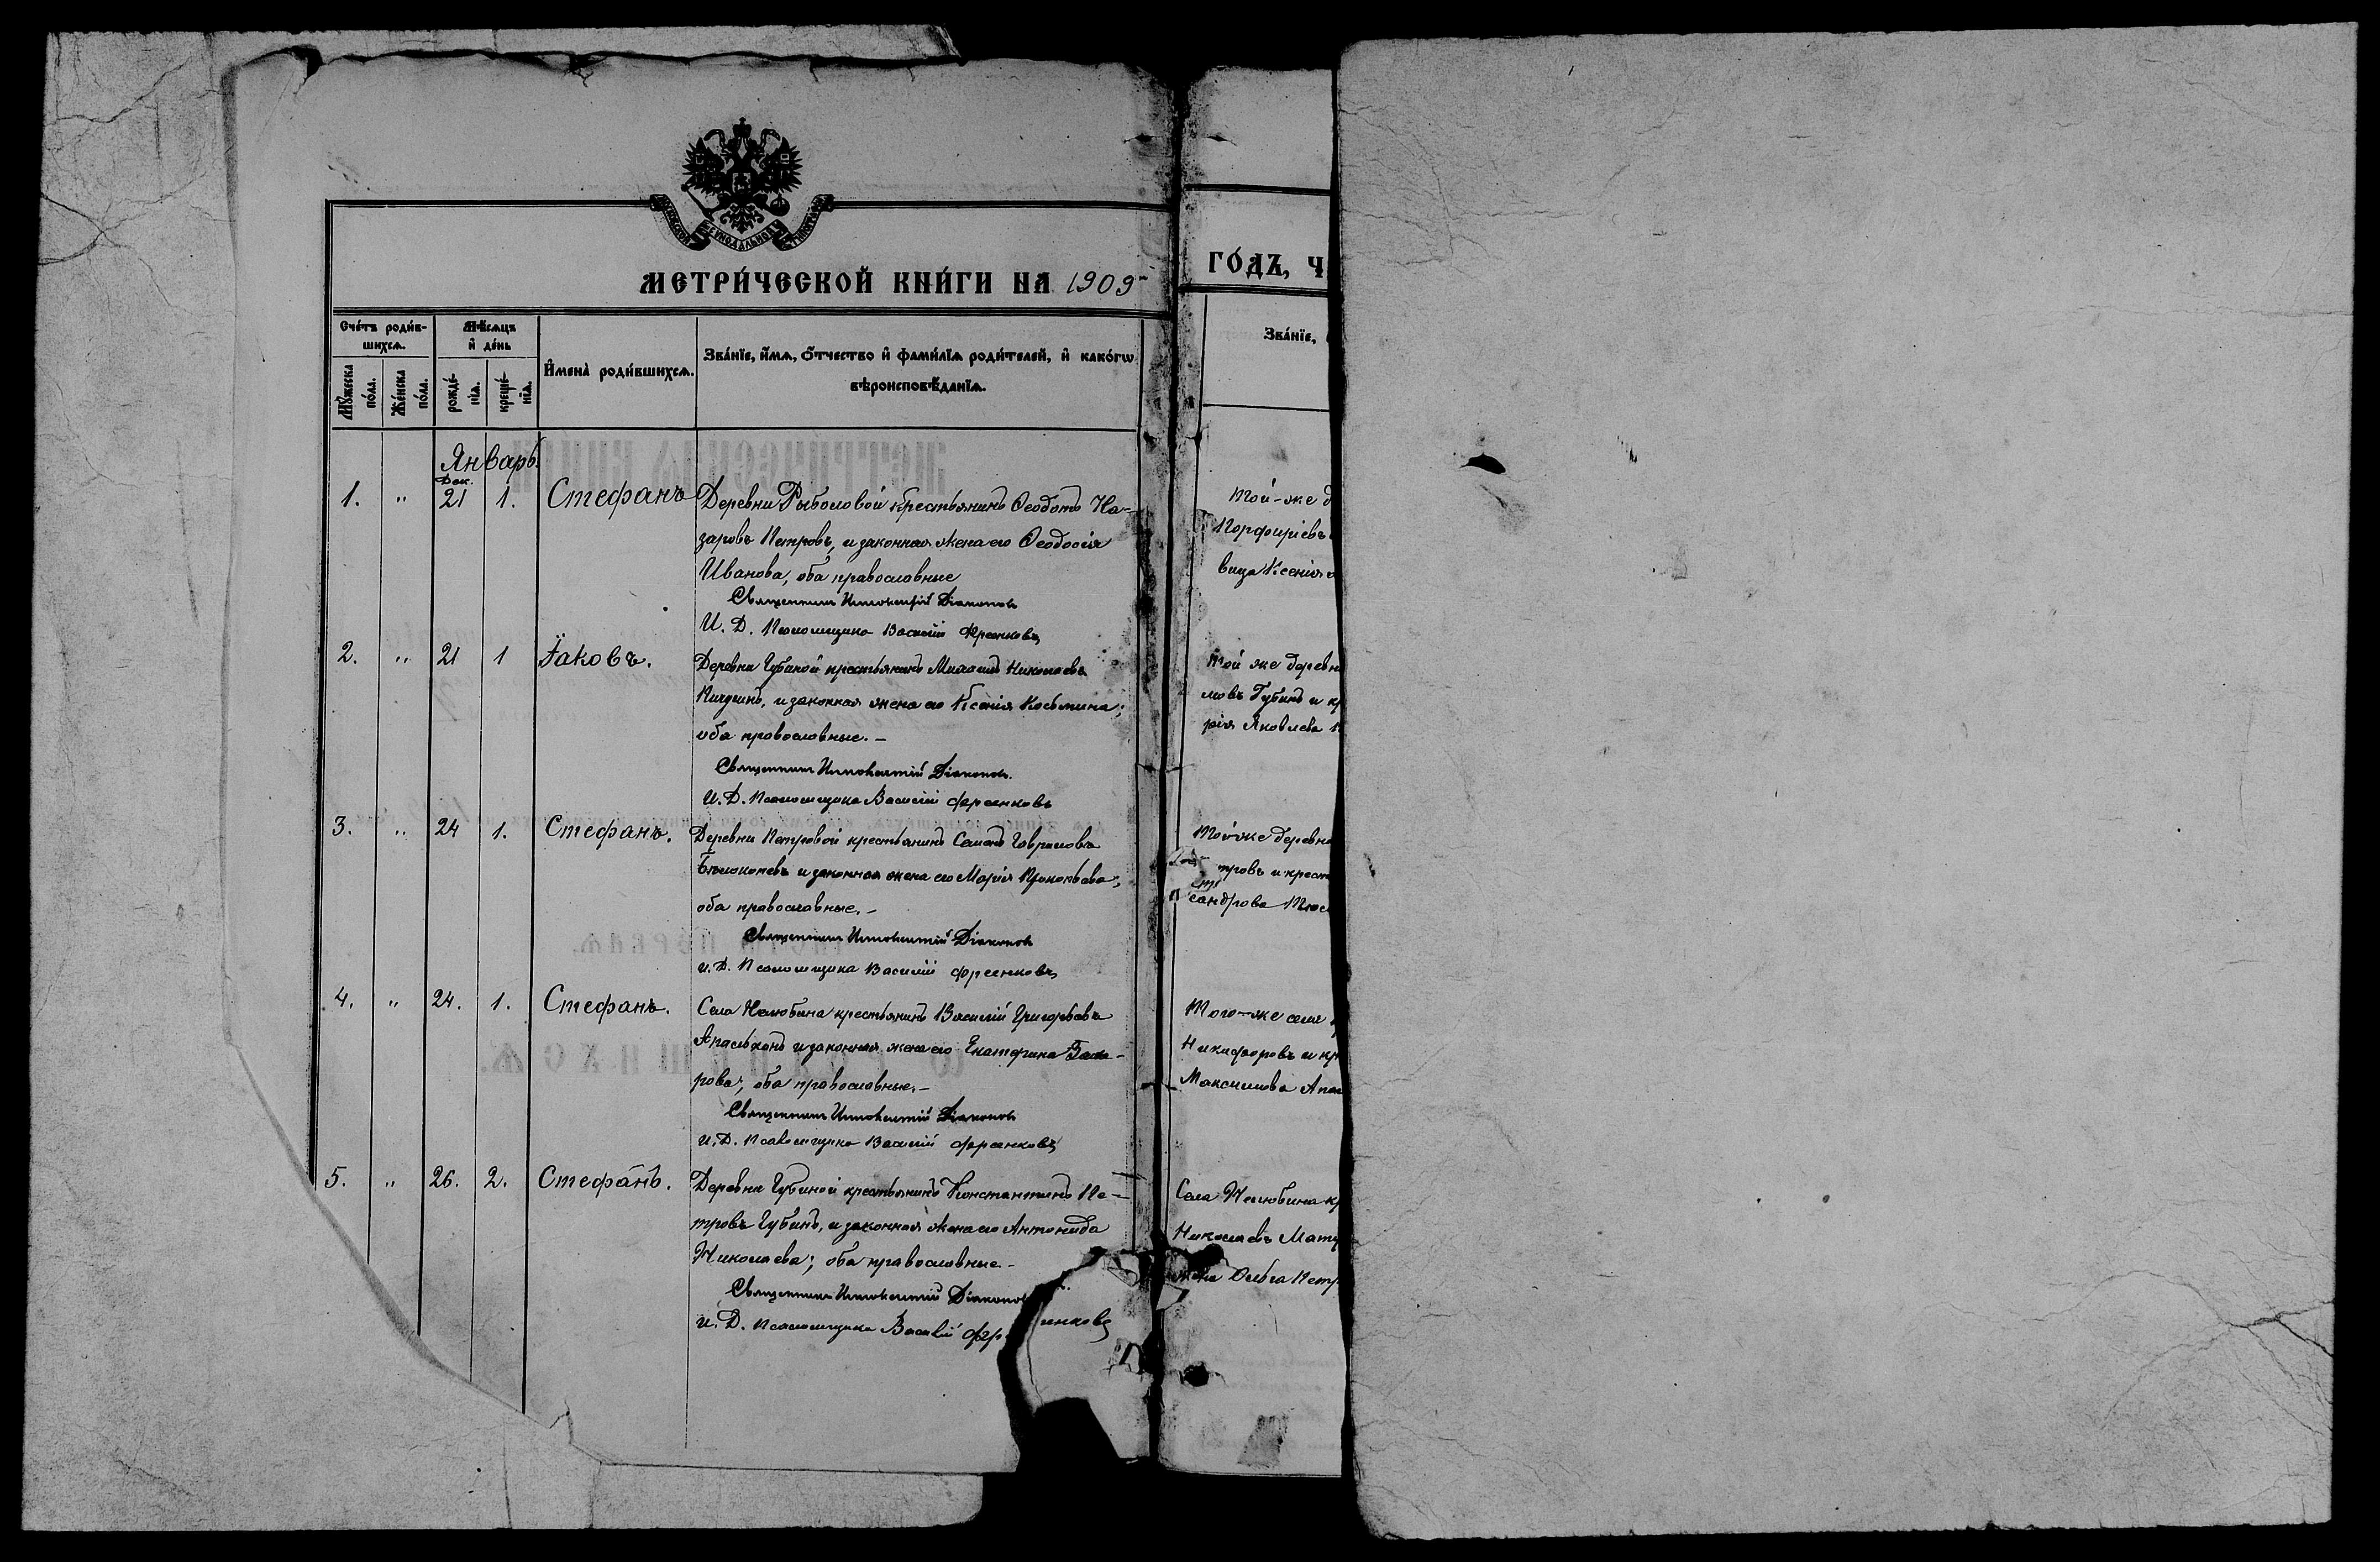 МЕТРИ́ЧЕСКОЙ КНИ́ГИ НА 1909
ГО́ДЪ, Ч
Сче́тъ роди́в-
шихсѧ.
Мѣ́сѧцъ
и҆ де́нь
И҆мена̀ роди́вшихсѧ.
Зва́нїе, и҆́мѧ, ѻ҆́тчество и҆ фами́лїѧ роди́телей, и҆ како́гѡ
вѣроисповѣ́данїѧ.
Мꙋ́жеска
по́ла.
Же́нска
по́ла.
рожде́-
нїѧ.
креще́-
нїѧ.
Зва́нїе,
Январь.
Дек.
1. " 21 1. Стефанъ
Деревни Рыболовой крестьянинъ Ѳеодотъ На-
заровъ Петровъ, и законная жена его Ѳеодосія
Иванова, оба православные
Священникъ Иннокентій Діаконовъ
И. Д. Псаломщика Василій
2. " 21 1 Іаковъ.
Деревни Губиной крестьянинъ Михаилъ Николаевъ
и законная жена его Ксенія Косьмина;
оба православные. –
Священникъ Иннокентій Діаконовъ.
И. Д. Псаломщика Василій
3. " 24 1. Стефанъ.
Деревни Петровой крестьянинъ Семенъ Гавриловъ
Бѣлоконевъ и законная жена его Марія Прокопьева;
оба православные. –
Священникъ Иннокентій Діаконовъ
И. Д. Псаломщика Василій
4. " 24. 1. Стефанъ.
Села Нелюбина крестьянинъ Василій Григорьевъ
и законная жена его Екатерина Заха-
рова; оба православные. –
Священникъ Иннокентій Діаконовъ
И. Д. Псаломщика Василій
5. " 26. 2. Стефанъ.
Деревни Губиной крестьянинъ Константинъ Пе-
тровъ Губинъ, и законная жена его Антонида
Николаева; оба православные –
Священникъ Иннокентій Діаконов
И. Д. Псаломщика Василій
Той-же д
Порфирьевъ
вица Ксенія
Той же деревн
ловъ Губинъ и кр
рія Яковлева
Той-же деревн
тровъ и крест
сандрова
Того-же села
Никифоровъ и кр
Максимова
Села Нелюбина кр
Николаевъ
жена Ольга Петр